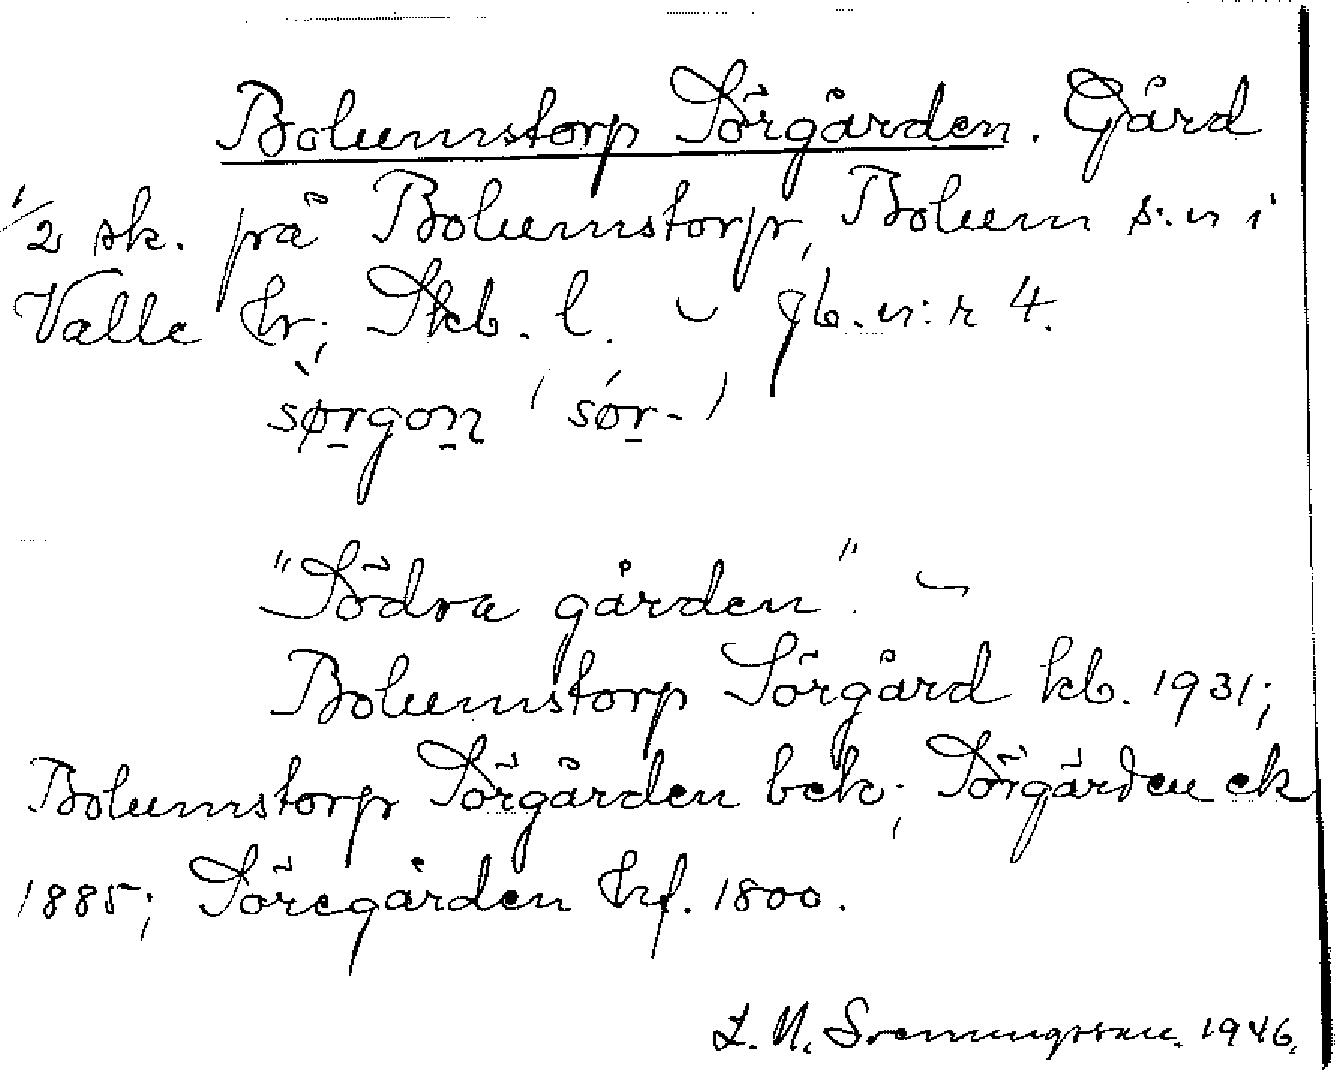 Bolumstorp Sörgården. Gård
1/2 sk. på Bolumstorp, Bolum s:n i
Valle hr; Skb. l. – jb. n:r 4.
sørgon (sør-)
"Södra gården". –
Bolumstorp Sörgård kb. 1931;
Bolumstorp Sörgården bek; Sörgården ek
1885; Söregården hf. 1800.
1946.